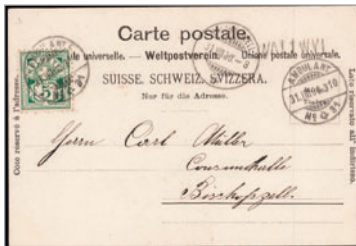 Carte postale.
Union postale universelle. — Weltpostverein. — Unione postale universale.
WALLWYL
SUISSE. SCHWEIZ. SVIZZERA.
Nur für die Adresse.
Côté réservé à l'adresse.
Lato riservato all' indirizzo.
AMBULANT
31.VIII.96.-310
No 9
Herrn Carl Müller
Consumhalle
Bischofszell.